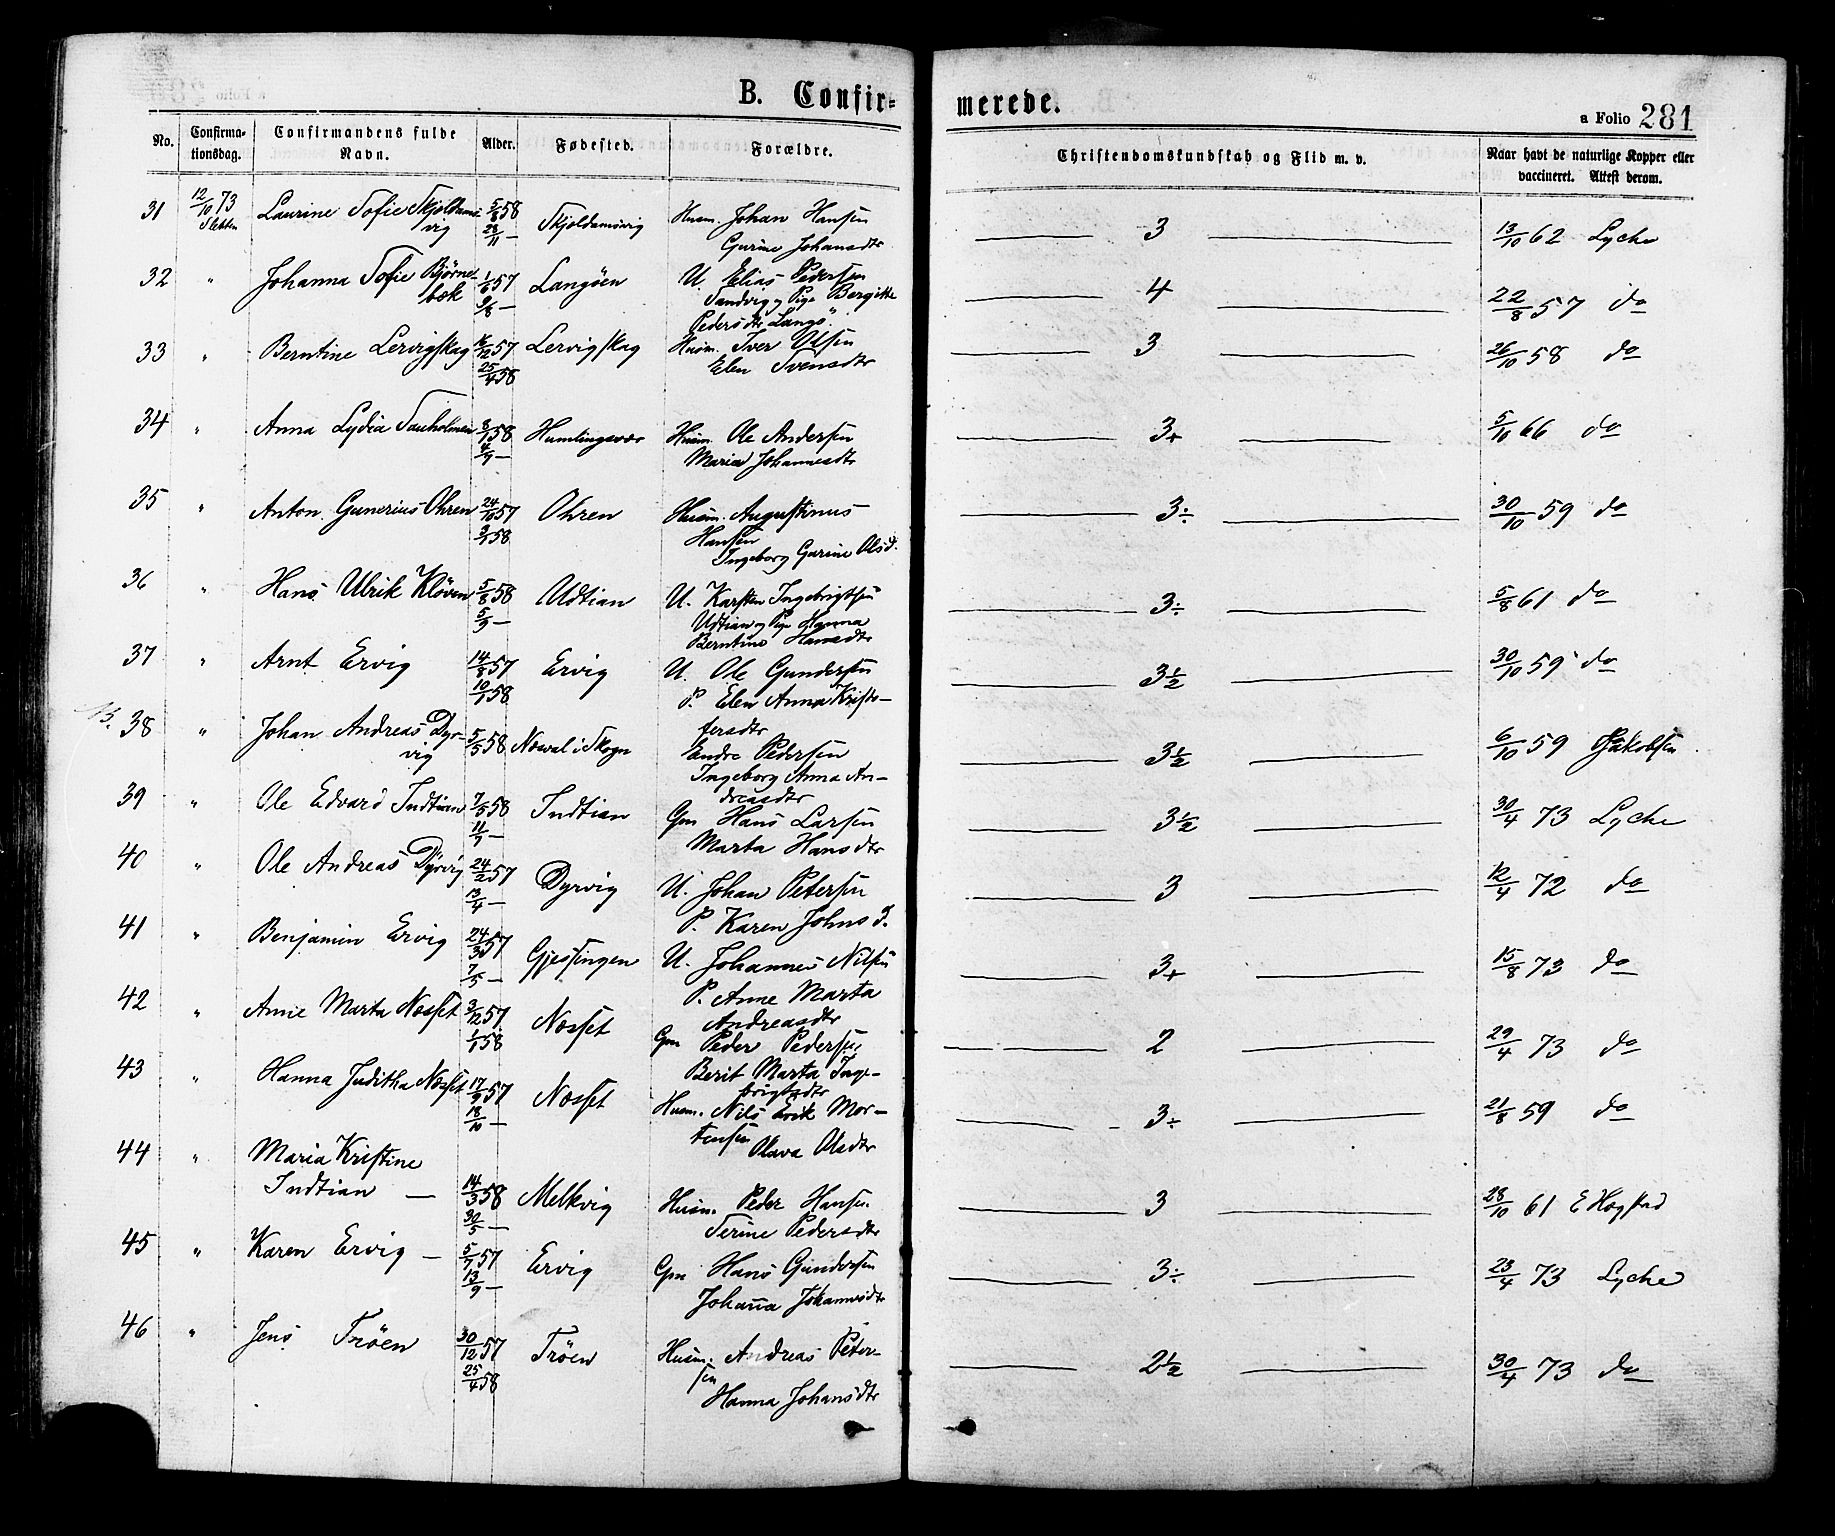 B. Confir=
merede.
a Folio 281
No. Confirma-tionsdag. Confirmandens fulde Navn. Alder. Fødested. Forældre. Christendomskundskab og Flid m. v. Naar havt de naturlige Kopper eller vaccineret. Attest derom.
31 12/10 73 Laurine Sofie Skjoldams- 5/8 58 Skjoldamsvig Husm. Johan Hansen 3 13/10 62 Lyche
Sletten vig 28/11 — Gurine Johansdtr
32 " Johanna Sofie Bjørne- 1/6 57 Langøen U. Elias Pedersen 4 22/8 57 do
bæk 9/8 — Sandvig og Pige Bergitte
Pedersdtr Langö
33 " Berntine Lervigskag 16/12 57 Lervigskag Husm. Iver Olsen 3 26/10 58 do
25/4 58 Elen Svensdtr
34 " Anna Lydia Sauholmen 3/1 58 Humlingsvær Husm. Ole Andersen 3+ 5/10 66 do
/9 — Maria Johannesdtr
35 " Anton Gunerius Ohren 24/10 57 Ohren Husm. Augustinus 3÷ 30/10 59 do
3/1 58 Hansen
Ingeborg Gurine Olsd.
36 " Hans Ulrik Kløven 5/8 58 Udtian U. Karsten Ingebrigtsen 3÷ 5/8 61 do
5/9 — Udtian og Pige Hanna
Berntine Hansdtr
37 " Arnt Ervig 14/8 57 Ervig U. Ole Gundersen 3½ 30/10 59 do
10/1 58 P. Elen Anna Kristo-
fersdtr
38 " Johan Andreas Dyr- 5/5 58 Næsval i Skogn Endre Pedersen 3½ 6/10 59 Jakobsen
vig Ingeborg Anna An-
dreasdtr
39 " Ole Edvard Indtian 7/5 58 Indtian Gm Hans Larsen 3½ 30/4 73 Lyche
11/7 — Marta Hansdtr
40 " Ole Andreas Dyrvig 24/2 57 Dyrvig U. Johan Petersen 3 12/4 72 do
13/4 — P. Karen Johnsd.
41 " Benjamin Ervig 24/3 57 Gjessingen U. Johannes Nilsen 3+ 15/8 73 do
7/5 — P. Anne Marta
Andreasdtr
42 " Anne Marta Næsset 3/12 57 Næsset Gm Peder Pedersen 2 29/4 73 do
1/1 58 Berit Marta Inge-
brigtsdtr
43 " Hanna Juditha Næsset 17/9 57 Næsset Husm. Nils Erik Mor- 3÷ 21/8 59 do
18/10 — tensen
Olava Olsdtr
44 " Maria Kristine
Indtian — 14/3 58 Melkvig Husm. Peder Hansen 3 28/10 61 E Hogstad
30/5 — Serine Pedersdtr
45 " Karen Ervig — 5/7 57 Ervig Gm Hans Gundersen 3÷ 23/4 73 Lyche
13/9 — Johanna Johannesdtr
46 " Jens Trøen 30/12 57 Trøen Husm. Andreas Peter- 2½ 30/4 73 do
25/4 58 sen
Hanna Johansdtr